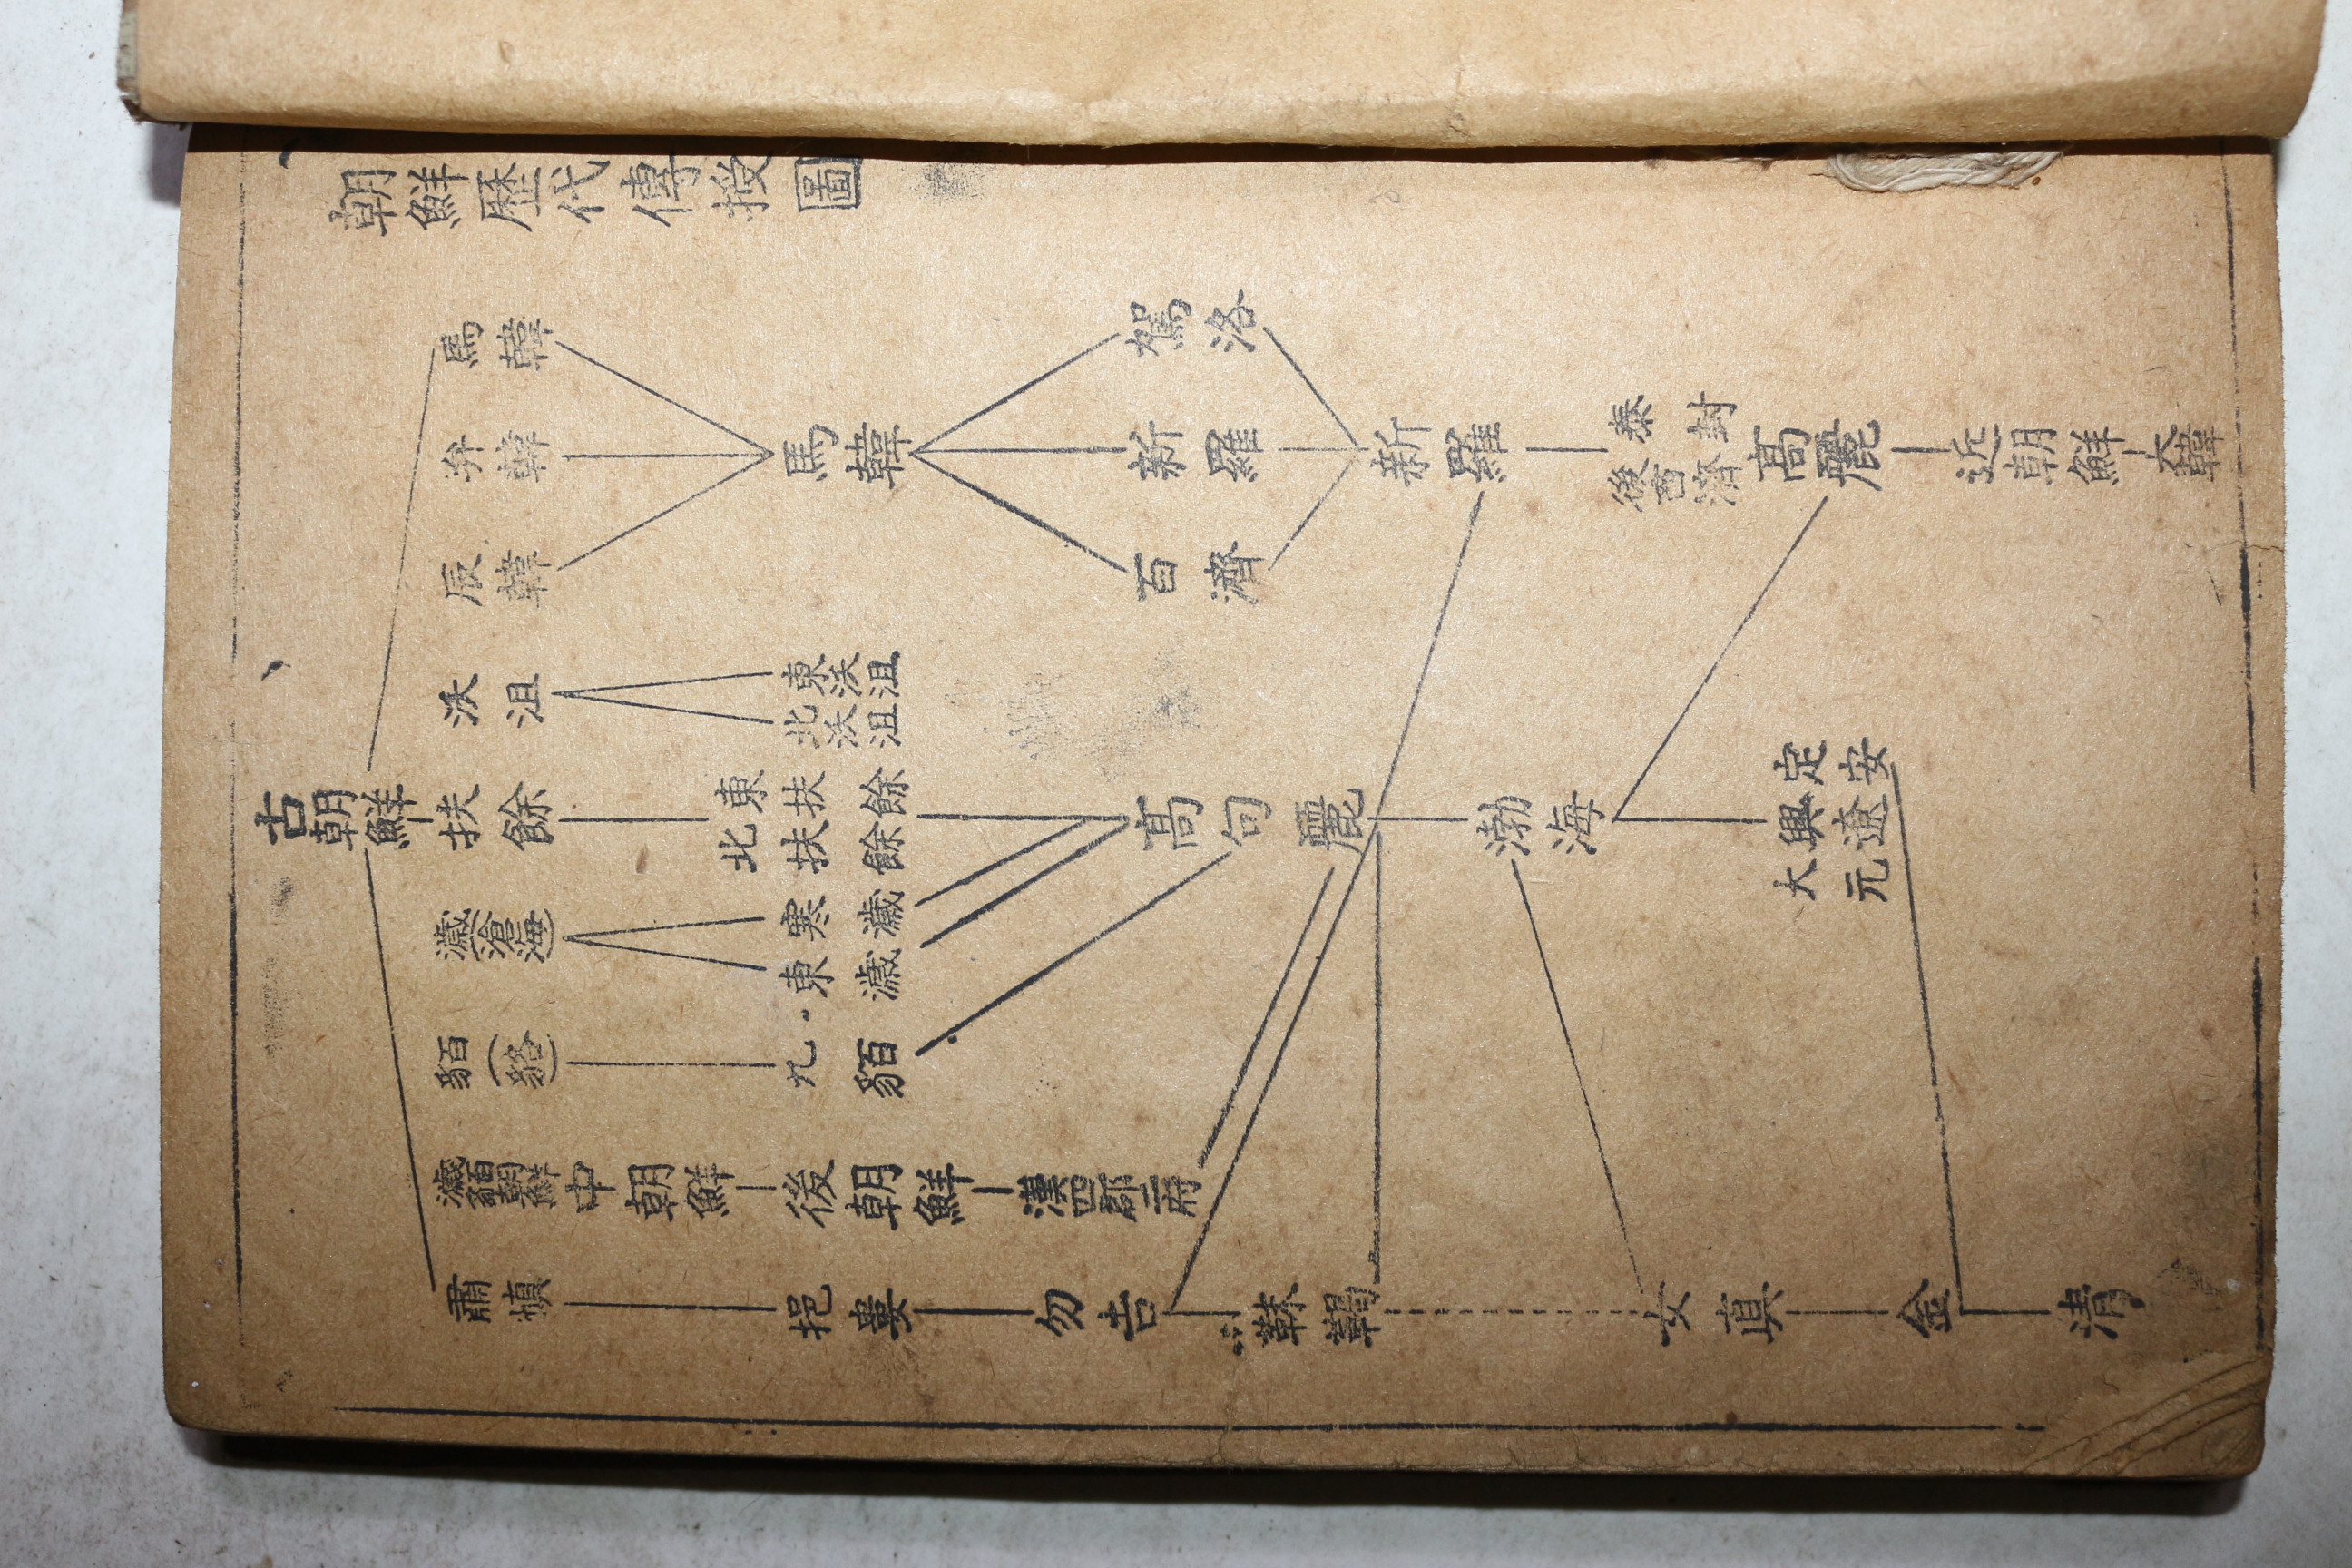 朝鮮歷代傳授圖
古朝鮮
馬韓
弁韓
辰韓
沃沮
扶餘
濊(滄海)
貊(貉)
濊貊朝鮮
中朝鮮
肅愼
馬韓
東沃沮
北沃沮
東扶餘
北扶餘
寒濊
東濊
九貊
後朝鮮
挹婁
駕洛
新羅
百濟
高句麗
漢四郡二府
勿吉
靺鞨
新羅
渤海
泰封
後百濟
高麗
定安
興遼
大元
女眞
金
近朝鮮
大韓
清